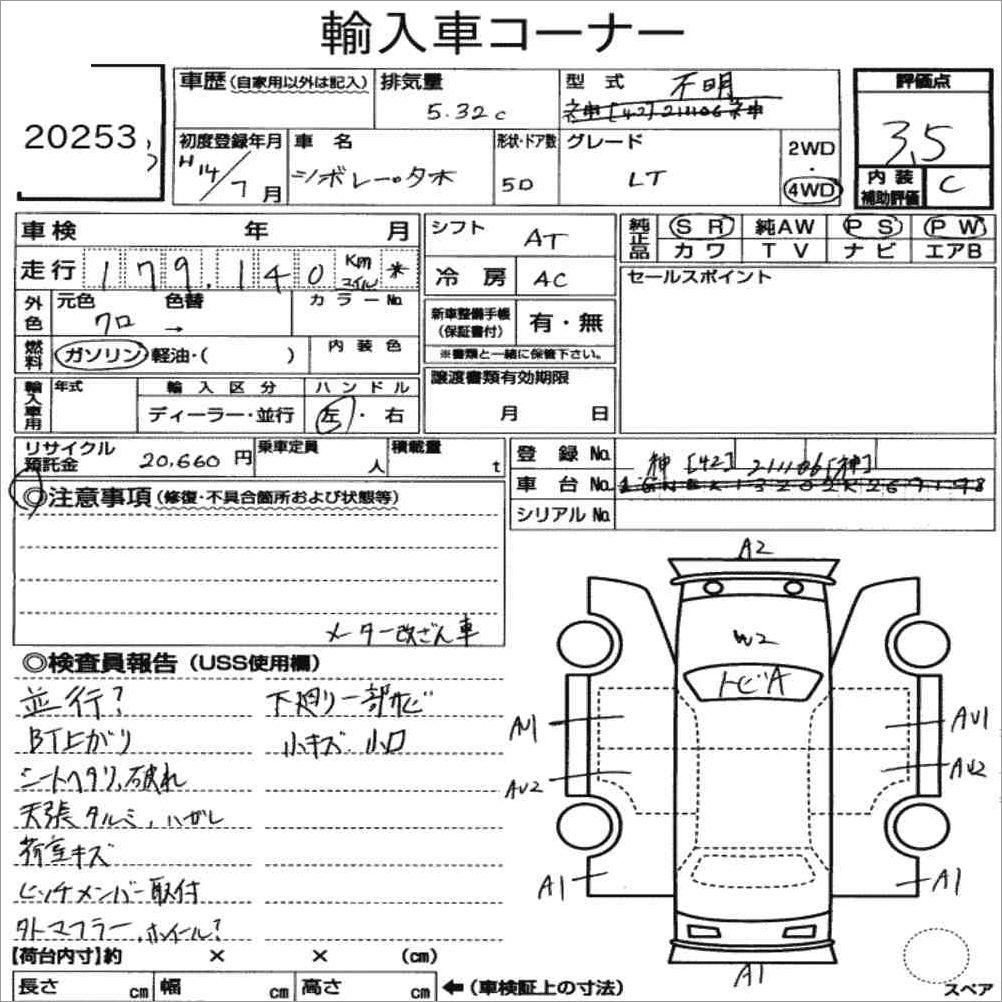 輸入車コーナー
20253
車歴(自家用以外は記入)
排気量
5.32c
型式 不明
評価点
3.5
内装補助評価 C
初度登録年月
H14/7月
車名
シボレー・タホ
形状・ドア数
5D
グレード
LT
2WD・4WD
車検 年 月
走行 179,140 Km マイル 米
シフト AT
冷房 AC
純正品 SR 純AW PS PW
カワ TV ナビ エアB
セールスポイント
外色 元色 クロ → 色替
カラーNo.
燃料 ガソリン・軽油・( )
内装色
新車整備手帳(保証書付) 有・無
※書類と一緒に保管下さい。
輸入車用 年式
輸入区分
ディーラー・並行
ハンドル
左・右
譲渡書類有効期限
月 日
リサイクル預託金 20,660円
乗車定員 人
積載量 t
登録No.
車台No. 神[42]211106[神]
シリアルNo.
◎注意事項(修復・不具合箇所および状態等)
メーター改ざん車
◎検査員報告(USS使用欄)
並行?
下廻り一部サビ
BT上がり
小キズ 小凹
シートヘタリ、破れ
天張タルミ、ハガレ
荷室キズ
ヒッチメンバー取付
外マフラー、ホイール?
A2
W2
トビA
AU1
AU1
AU2
AU2
A1
A1
A1
【荷台内寸】約 × × (cm)
長さ cm 幅 cm 高さ cm ←(車検証上の寸法)
スペア